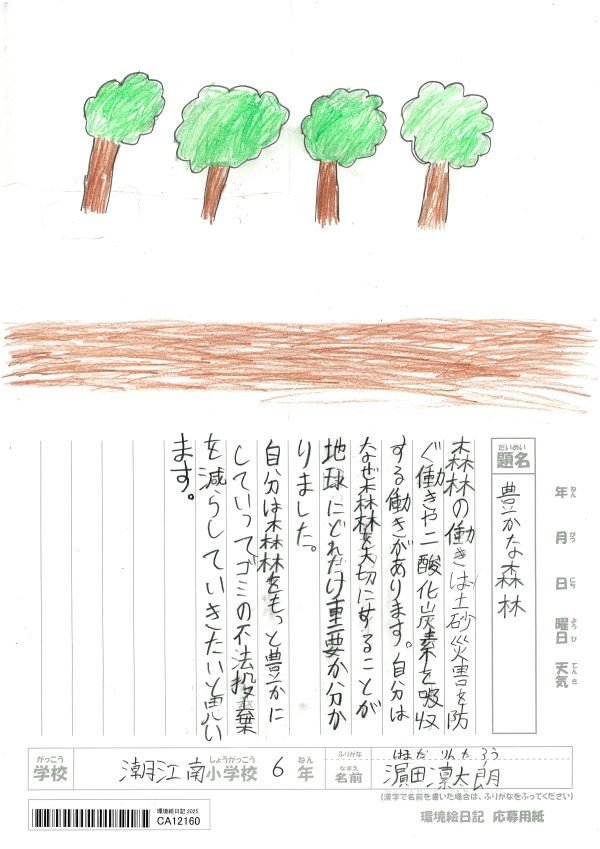 だいめい
題名
豊かな森林
年 ねん
月 がつ
日 にち
曜日 ようび
天気 てんき
森林の働きは土砂災害を防
ぐ働きや二酸化炭素を吸収
する働きがあります。自分は
なぜ森林を大切にすることが
地球にどれだけ重要か分か
りました。
自分は森林をもっと豊かに
していってゴミの不法投棄
を減らしていきたいと思い
ます。
がっこう
学校
潮江南
しょうがっこう
小学校
6
ねん
年
ふりがな
はまだ りんたろう
なまえ
名前
濵田凛太朗
(漢字で名前を書いた場合は、ふりがなをふってください)
環境絵日記 2025
CA12160
環境絵日記 応募用紙